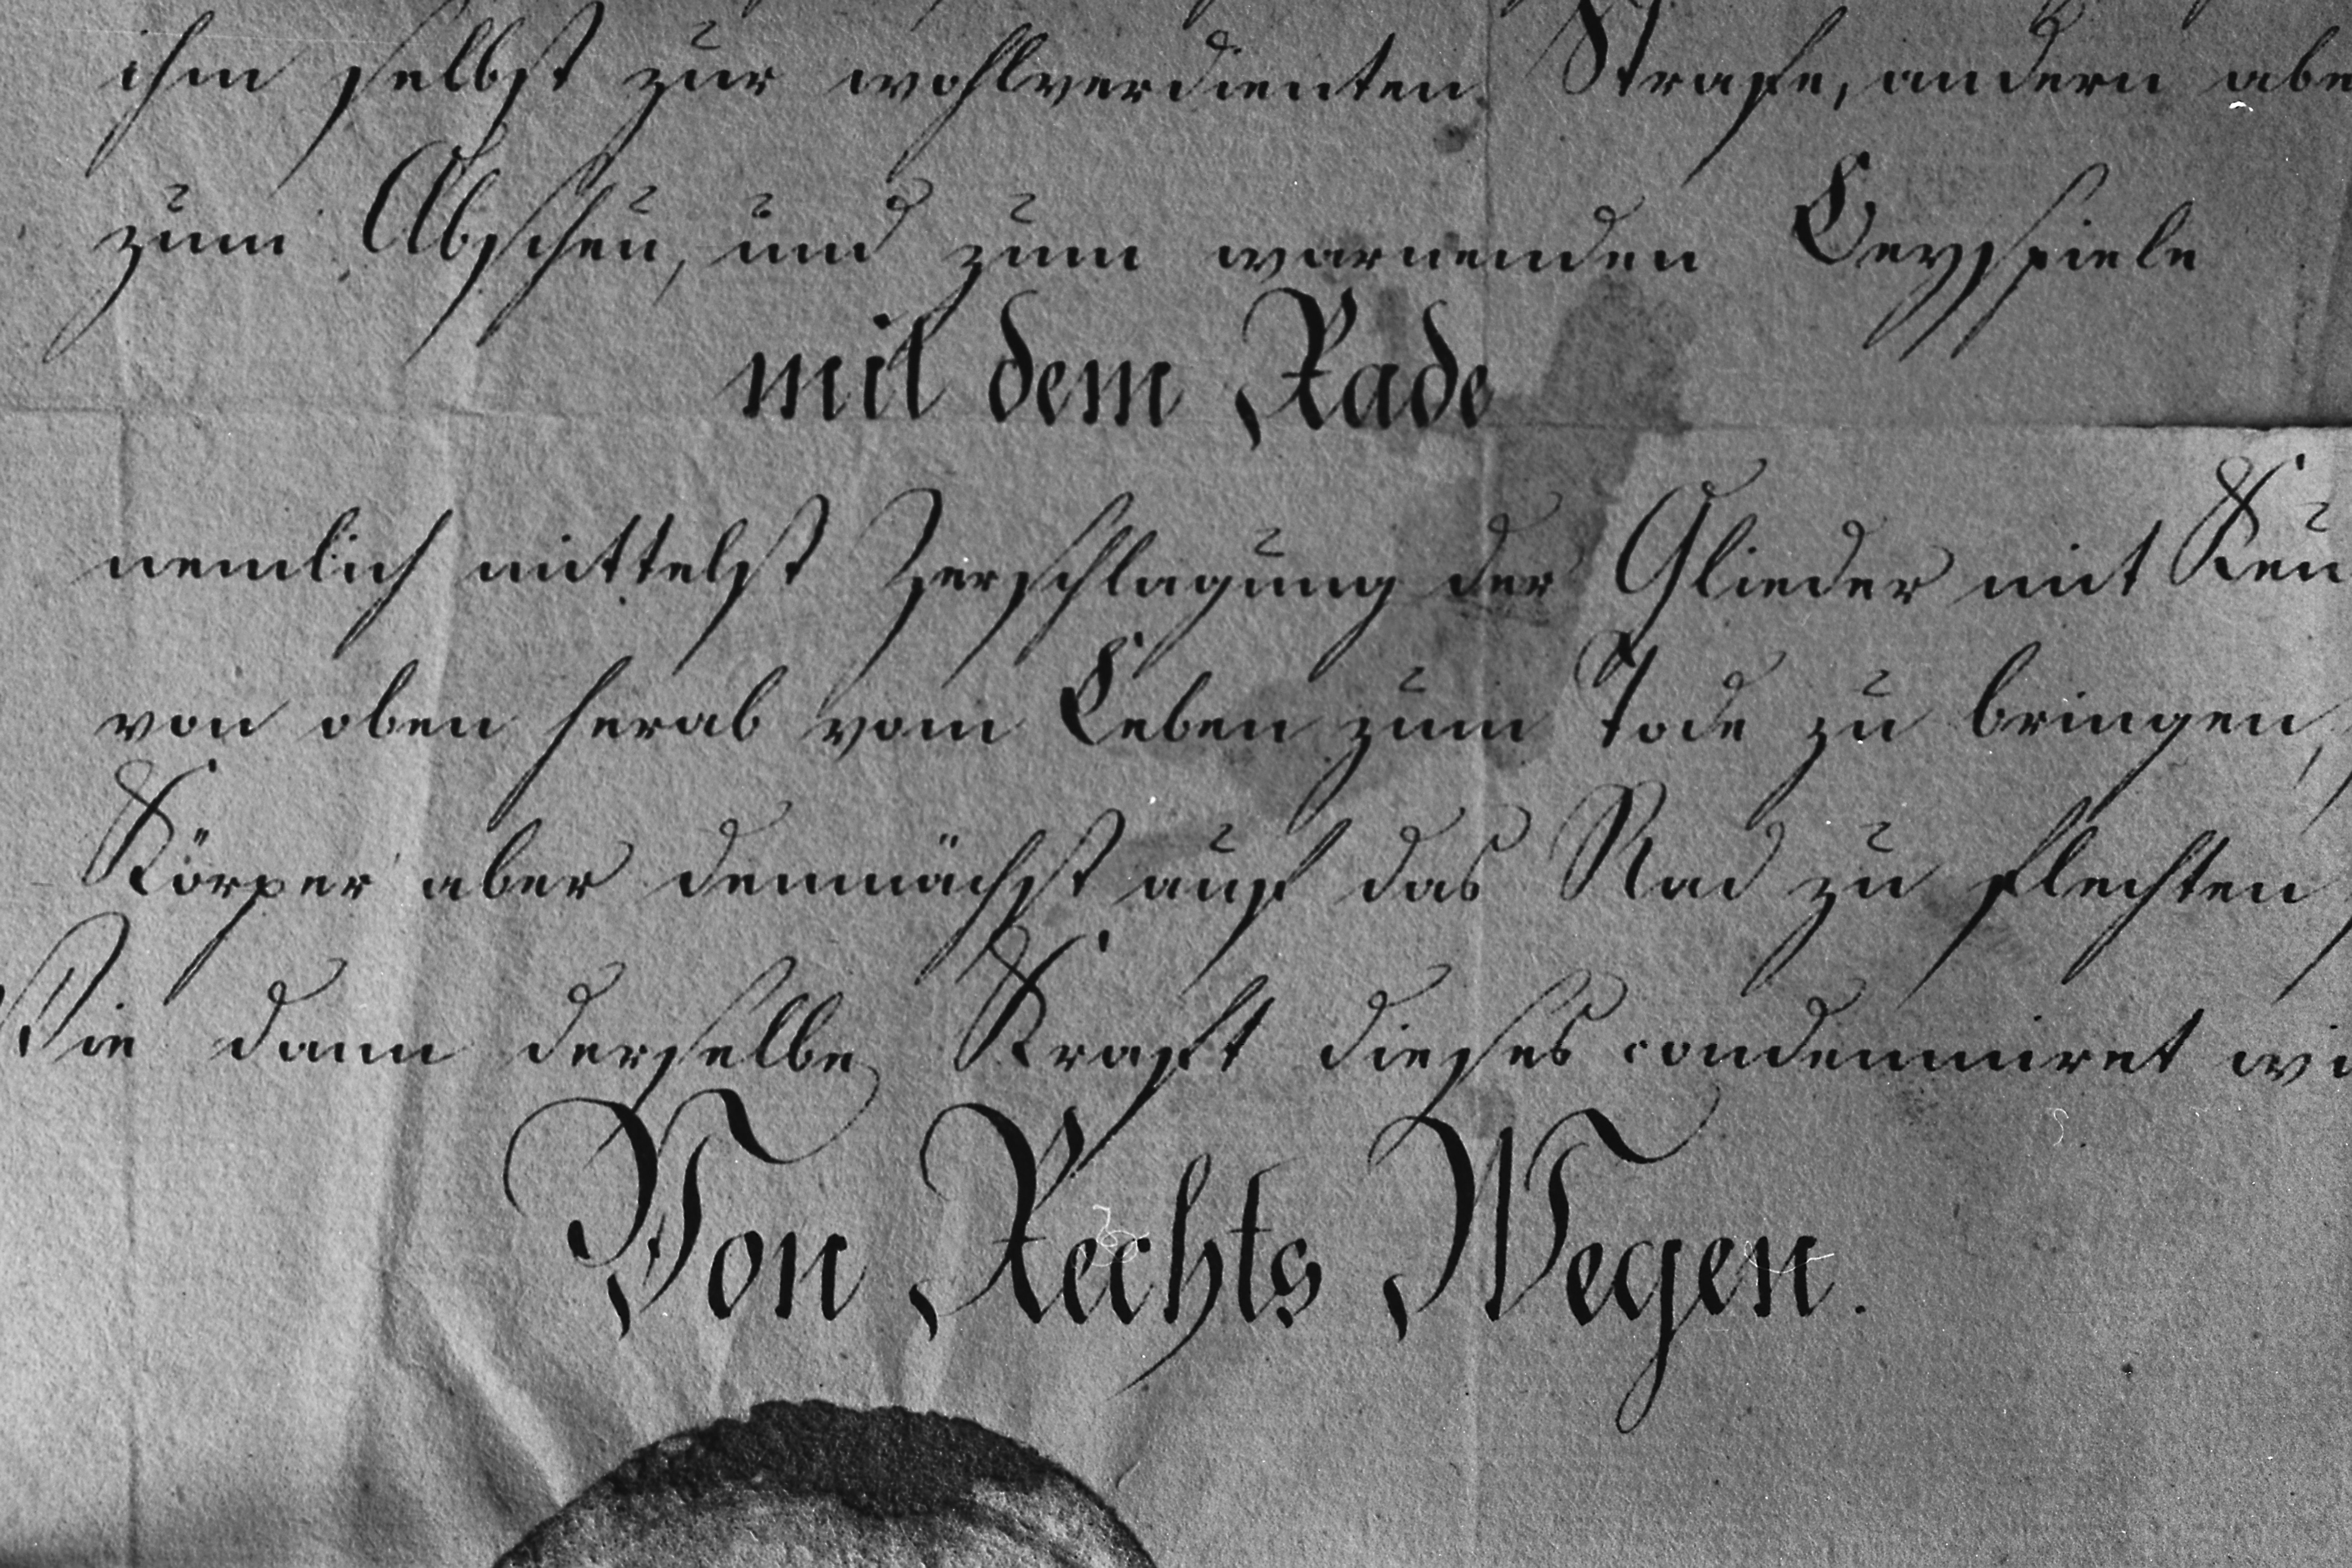 ihm selbst zur wohlverdienten Strafe, andern abe
zum Abscheu, und zum warnenden Beyspiele
mit dem Rade
nemlich mittelst Zerschlagung der Glieder mit Keu
von oben herab vom Leben zum Tode zu bringen,
Körper aber demnächst auf das Rad zu flechten
Wie dann derselbe Kraft dieses condemniret wi
Von Rechts Wegen.